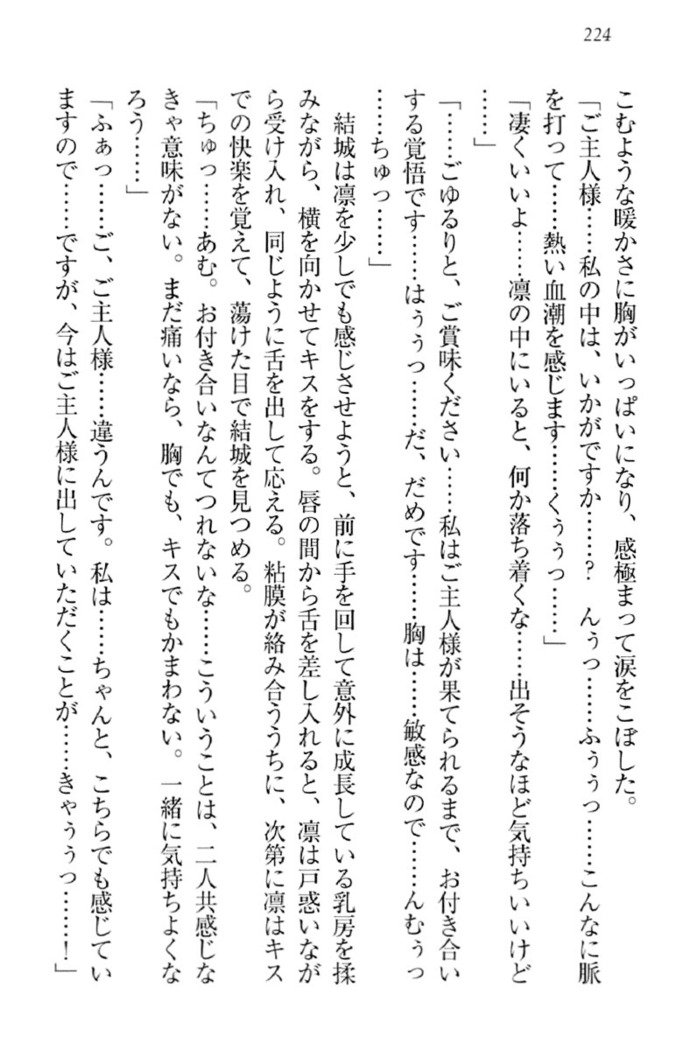 224
こむような暖かさに胸がいっぱいになり、感極まって涙をこぼした。
「ご主人様……私の中は、いかがですか……? んぅっ……ふぅぅっ……こんなに脈
を打って……熱い血潮を感じます……くぅぅっ……」
「凄くいいよ……凛の中にいると、何か落ち着くな……出そうなほど気持ちいいけど
……」
「……ごゆるりと、ご賞味ください……私はご主人様が果てられるまで、お付き合い
する覚悟です……はぅぅっ……だ、だめです……胸は……敏感なので……んむぅっ
……ちゅっ……」
結城は凛を少しでも感じさせようと、前に手を回して意外に成長している乳房を揉
みながら、横を向かせてキスをする。唇の間から舌を差し入れると、凛は戸惑いなが
ら受け入れ、同じように舌を出して応える。粘膜が絡み合ううちに、次第に凛はキス
での快楽を覚えて、蕩けた目で結城を見つめる。
「ちゅっ……あむ。お付き合いなんてつれないな……こういうことは、二人共感じな
きゃ意味がない。まだ痛いなら、胸でも、キスでもかまわない。一緒に気持ちよくな
ろう……」
「ふぁっ……ご、ご主人様……違うんです。私は……ちゃんと、こちらでも感じてい
ますので……ですが、今はご主人様に出していただくことが……きゃぅぅっ……!」